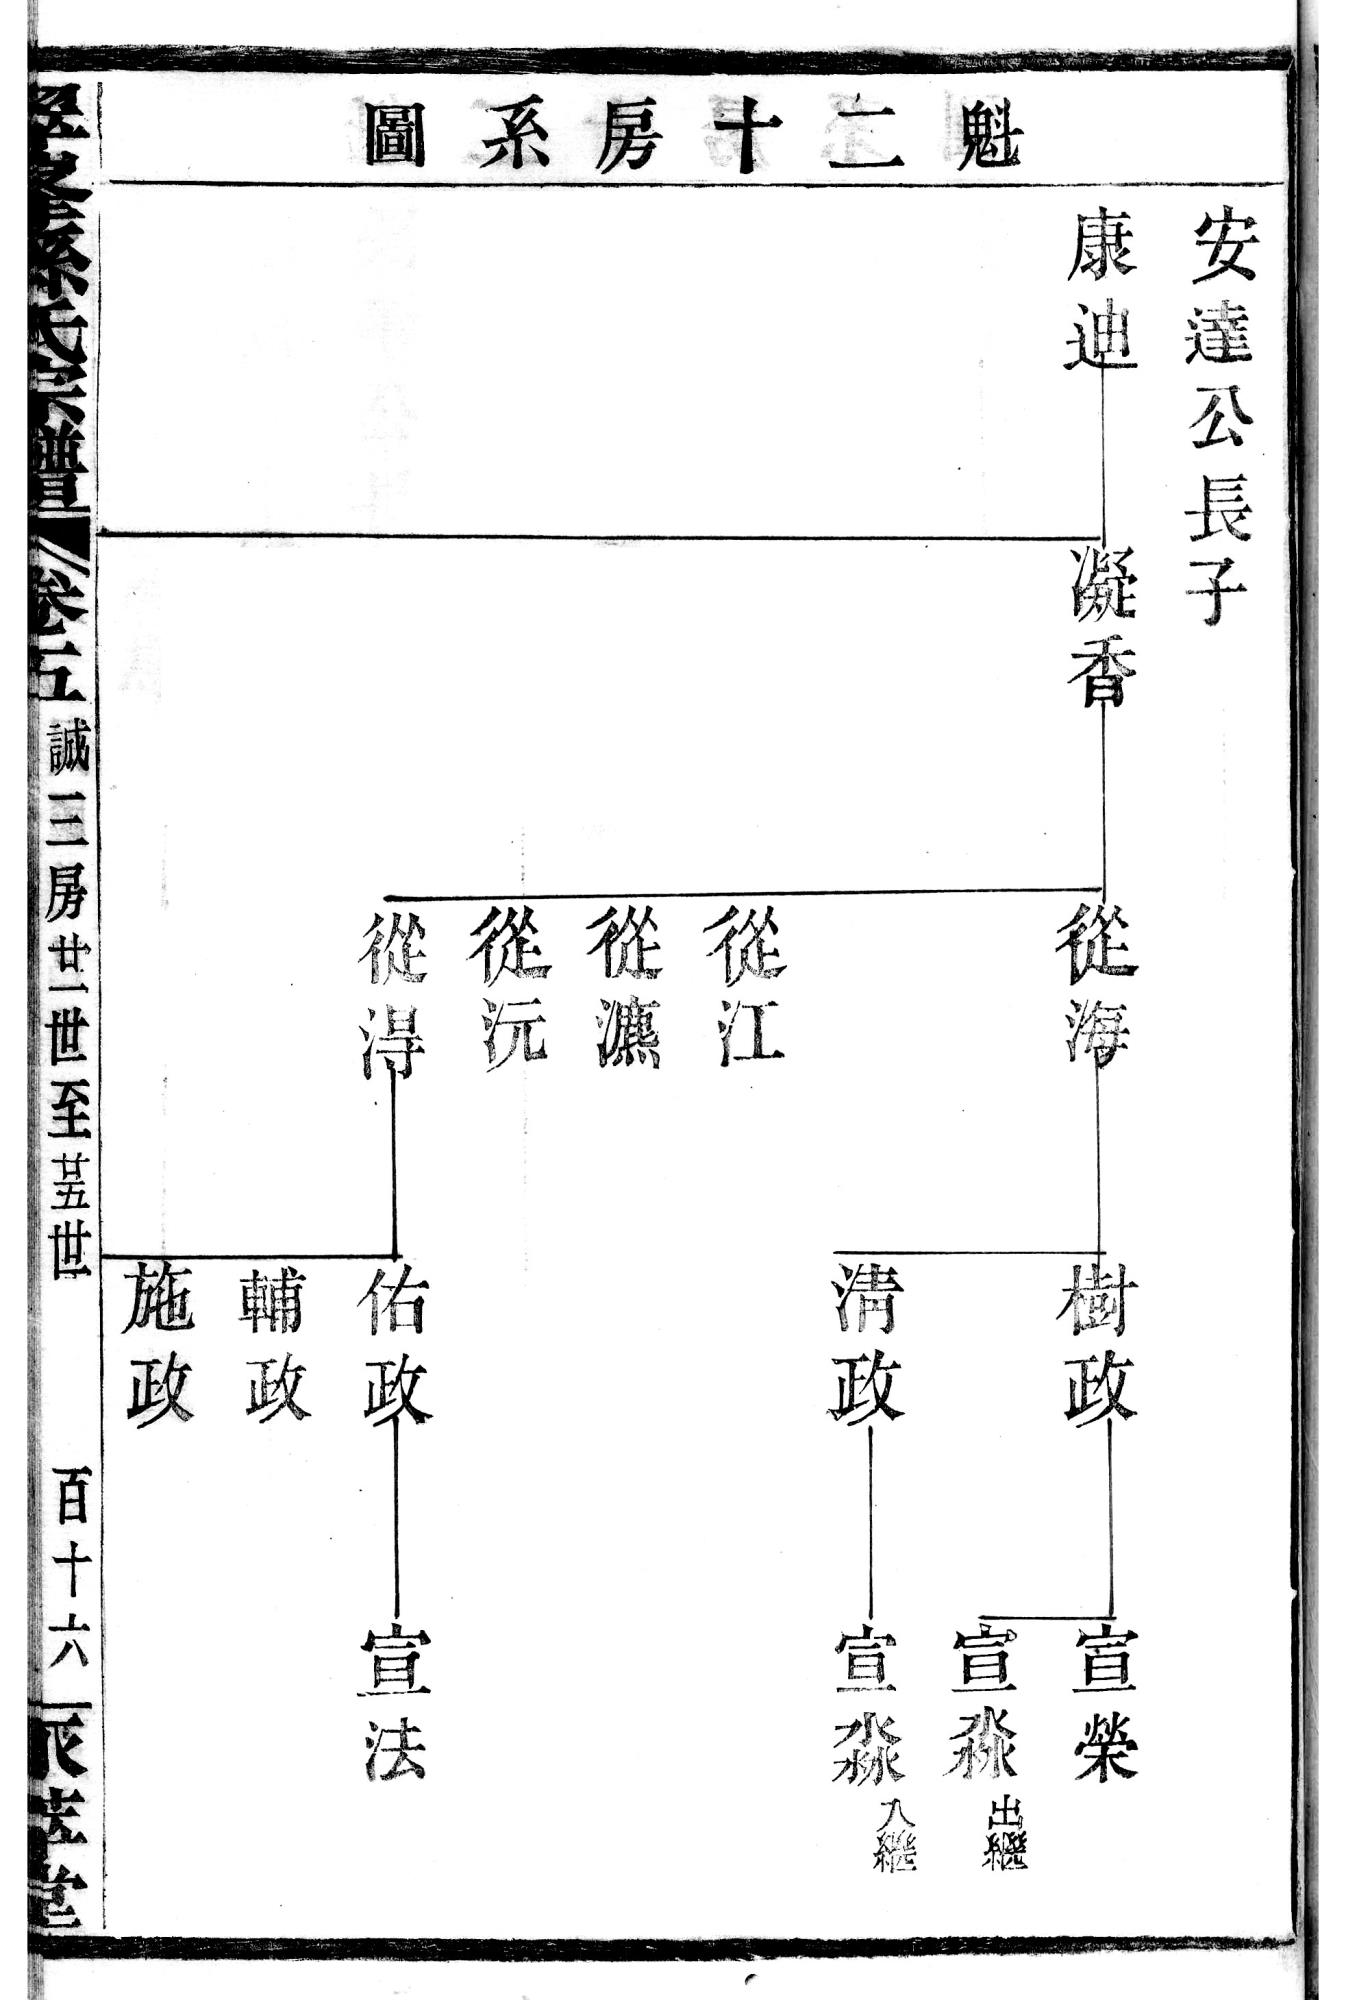 魁二十房系圖
安達公長子
康迪
凝香
從海
從江
從㶟
從沅
從淂
樹政
淸政
佑政
輔政
施政
宣榮
宣淼出繼
宣淼入繼
宣法
孫氏宗譜
卷五
誠三房廿一世至廿五世
百十六
堂